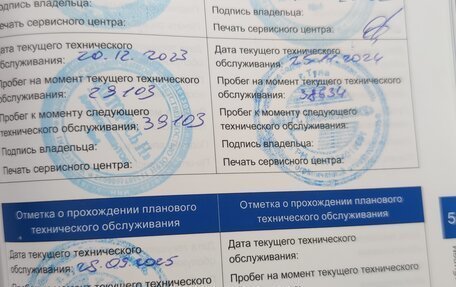 Подпись владельца:
Печать сервисного центра:
Дата текущего технического
обслуживания: 20.12.2023
Пробег на момент текущего технического
обслуживания: 29103
Пробег к моменту следующего
технического обслуживания: 39103
Подпись владельца:
Печать сервисного центра:
Подпись владельца:
Печать сервисного центра:
Дата текущего технического
обслуживания: 25.11.2024
Пробег на момент текущего технического
обслуживания: 38634
Пробег к моменту следующего
технического обслуживания:
Подпись владельца:
Печать сервисного центра:
г. Тула
Отметка о прохождении планового
технического обслуживания
Дата текущего технического
обслуживания: 25.09.2025
Отметка о прохождении планового
технического обслуживания
Дата текущего технического
обслуживания:
Пробег на момент текущего технического
5